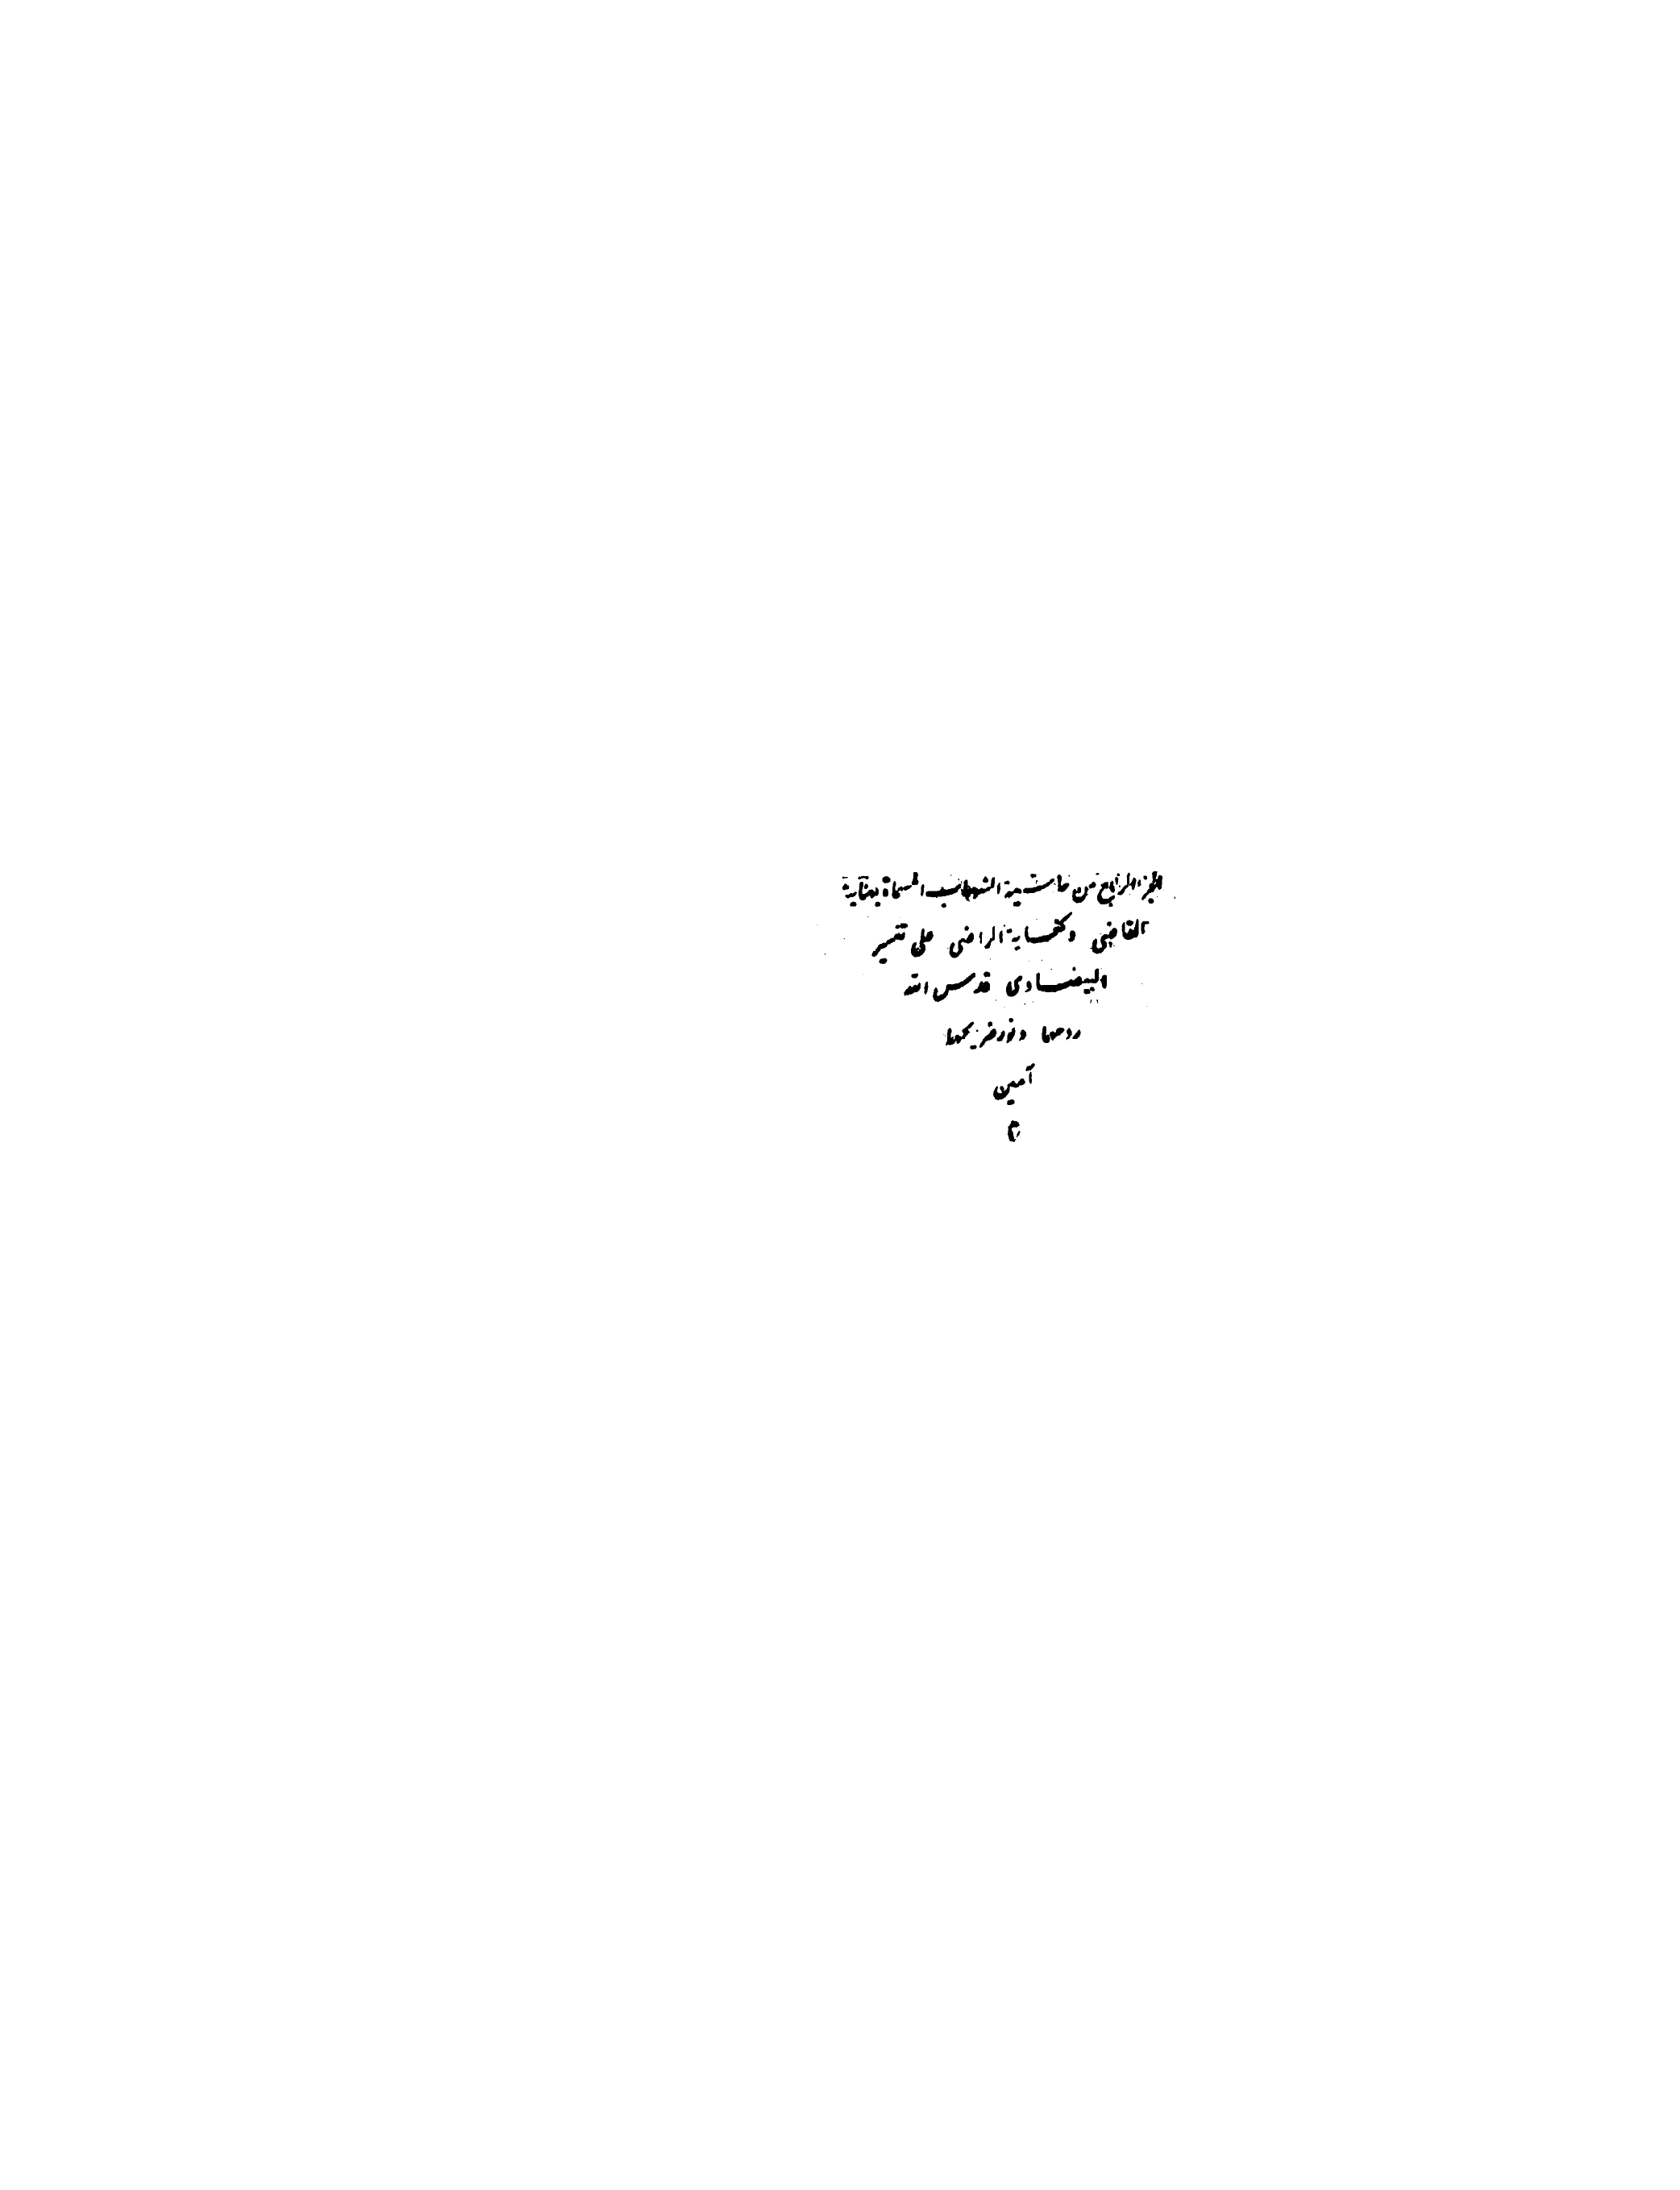 الجزء الرابع من حاشية الشهاب المسماة بعناية
القاضى وكفاية الراضى على تفسير
البيضاوى قدس الله
روحهما ونور ضريحهما
آمين
م